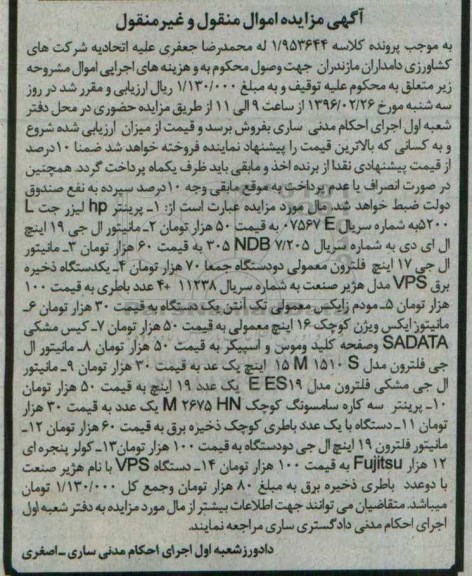 آگهی مزایده اموال منقول و غیر منقول
به موجب پرونده کلاسه ۱/۹۵۳۶۴۴ له محمدرضا جعفری علیه اتحادیه شرکت های
کشاورزی دامداران مازندران جهت وصول محکوم به و هزینه های اجرایی اموال مشروحه
زیر متعلق به محکوم علیه توقیف و به مبلغ ۱/۱۳۰/۰۰۰ ریال ارزیابی و مقرر شد در روز
سه شنبه مورخ ۱۳۹۶/۰۲/۲۶ از ساعت ۹ الی ۱۱ از طریق مزایده حضوری در محل دفتر
شعبه اول اجرای احکام مدنی ساری بفروش برسد و قیمت از میزان ارزیابی شده شروع
و به کسانی که بالاترین قیمت را پیشنهاد نماینده فروخته خواهد شد ضمنا ۱۰درصد
از قیمت پیشنهادی نقدا از برنده اخذ و مابقی باید ظرف یکماه پرداخت گردد. همچنین
در صورت انصراف یا عدم پرداخت به موقع مابقی وجه ۱۰درصد سپرده به نفع صندوق
دولت ضبط خواهد شد. مال مورد مزایده عبارت است از: ۱ـ پرینتر hp لیزر جت L
۵۲۰۰به شماره سریال ۰۷۵۶۷ E به قیمت ۵۰ هزار تومان ۲ـ مانیتور ال جی ۱۹ اینچ
ال ای دی به شماره سریال ۳۰۵ NDB ۷/۲۰۵ به قیمت ۶۰ هزار تومان ۳ـ مانیتور
ال جی ۱۷ اینچ فلترون معمولی دودستگاه جمعا ۷۰ هزار تومان ۴ـ یکدستگاه ذخیره
برق VPS مدل هژیر صنعت به شماره سریال ۱۱۲۳۸ ۴۰ عدد باطری به قیمت ۱۰۰
هزار تومان ۵ـ مودم زایکس معمولی تک آنتن یک دستگاه به قیمت ۳۰ هزار تومان ۶ـ
مانیتوز ایکس ویژن کوچک ۱۶ اینچ معمولی به قیمت ۵۰ هزار تومان ۷ـ کیس مشکی
SADATA وصفحه کلید وموس و اسپیکر به قیمت ۵۰ هزار تومان ۸ـ مانیتور ال
جی فلترون مدل ۱۵ M ۱۵۱۰ S اینچ یک عد به قیمت ۳۰ هزار تومان ۹ـ مانیتور
ال جی مشکی فلترون مدل E ES۱۹ یک عدد ۱۹ اینچ به قیمت ۵۰ هزار تومان
۱۰ـ پرینتر سه کاره سامسونگ کوچک M ۲۶۷۵ HN یک عدد به قیمت ۳۰ هزار
تومان ۱۱ـ دستگاه با یک عدد باطری کوچک ذخیره برق به قیمت ۶۰ هزار تومان ۱۲ـ
مانیتور فلترون ۱۹ اینچ ال جی دودستگاه به قیمت ۱۰۰ هزار تومان۱۳ـ کولر پنجره ای
۱۲ هزار Fujitsu به قیمت ۱۰۰ هزار تومان ۱۴ـ دستگاه VPS با نام هژیر صنعت
با دوعدد باطری ذخیره برق به مبلغ ۸۰ هزار تومان وجمع کل ۱/۱۳۰/۰۰۰ تومان
میباشد. متقاضیان می توانند جهت اطلاعات بیشتر از مال مورد مزایده به دفتر شعبه اول
اجرای احکام مدنی دادگستری ساری مراجعه نمایند.
دادورز شعبه اول اجرای احکام مدنی ساری ـ اصغری